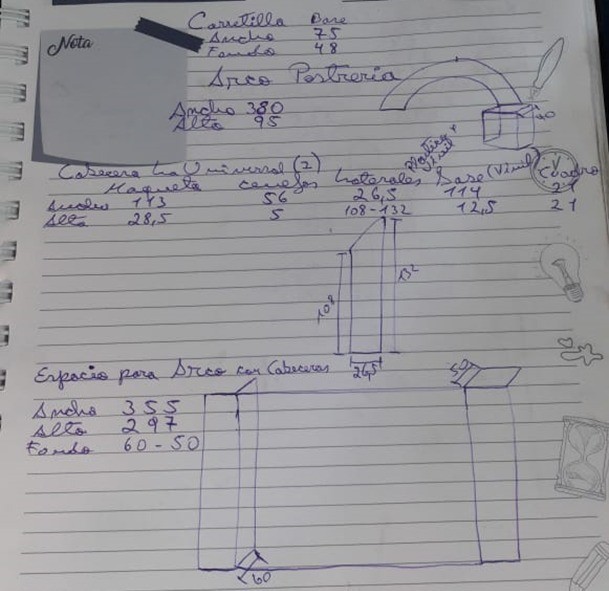 Carretilla Base
Nota
Ancho 75
Fondo 48
Arco Postreria
Ancho 380
Alto 95
Cabecera La Universal (2)
Maqueta cenefas Laterales Base (Vinil) Cuadro
Ancho 113 56 26,5 114 21
Alto 28,5 5 108-132 12,5 21
108
132
26,5
Espacio para Arco con Cabeceras
50
Ancho 355
Alto 297
Fondo 60-50
60